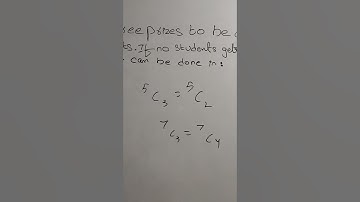 ree prizes to be
ts. If no students gets
can be done in:
⁵C₃ = ⁵C₂
⁷C₃ = ⁷C₄